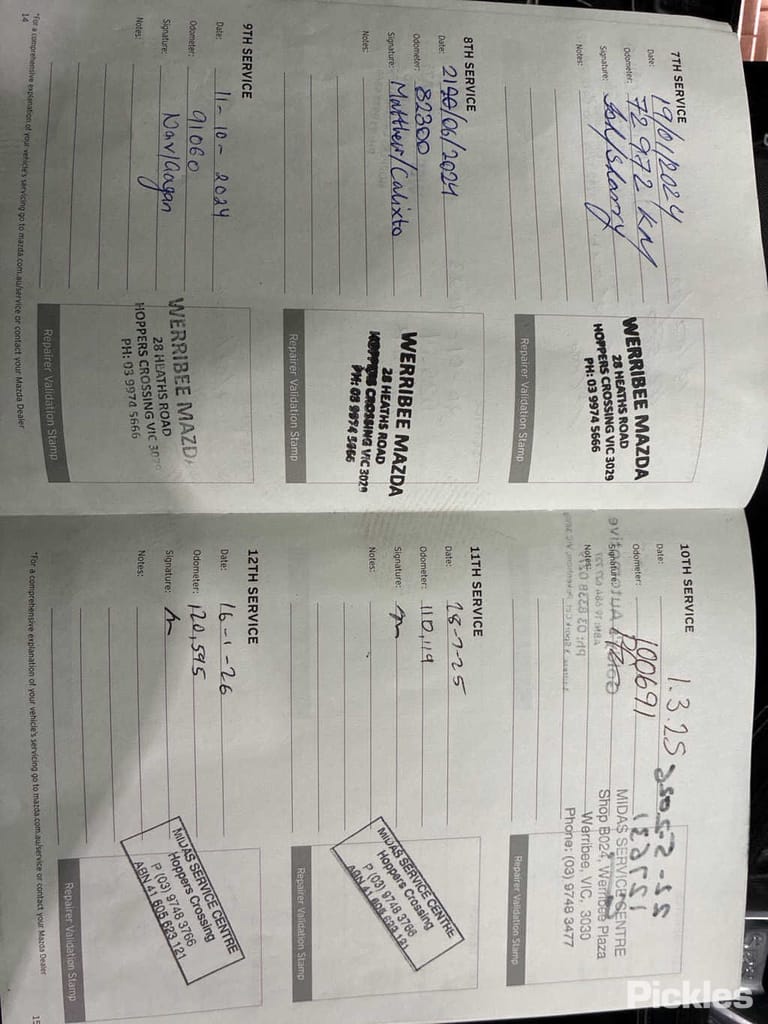 7TH SERVICE
Date: 19/01/2024
Odometer: 72972 KM
Signature:
Notes:
WERRIBEE MAZDA
28 HEATHS ROAD
HOPPERS CROSSING VIC 3029
PH: 03 9974 5666
Repairer Validation Stamp
8TH SERVICE
Date: /06/2024
Odometer: 82300
Signature: Matthew/Calixto
Notes:
WERRIBEE MAZDA
28 HEATHS ROAD
HOPPERS CROSSING VIC 3029
PH: 03 9974 5666
Repairer Validation Stamp
9TH SERVICE
Date: 11-10-2024
Odometer: 91060
Signature: Nav/Gagan
Notes:
WERRIBEE MAZDA
28 HEATHS ROAD
HOPPERS CROSSING VIC 3029
PH: 03 9974 5666
Repairer Validation Stamp
*For a comprehensive explanation of your vehicle's servicing go to mazda.com.au/service or contact your Mazda Dealer
14
10TH SERVICE
Date: 1.3.25
Odometer: 100691
Signature:
Notes:
MIDAS SERVICE CENTRE
Shop B024, Werribee Plaza
Werribee, VIC, 3030
Phone: (03) 9748 3477
Repairer Validation Stamp
11TH SERVICE
Date: 18-7-25
Odometer: 110,119
Signature:
Notes:
MIDAS SERVICE CENTRE
Hoppers Crossing
P (03) 9748 3766
ABN 41 605 623 121
Repairer Validation Stamp
12TH SERVICE
Date: 16-1-26
Odometer: 120,595
Signature:
Notes:
MIDAS SERVICE CENTRE
Hoppers Crossing
P (03) 9748 3766
ABN 41 605 623 121
Repairer Validation Stamp
*For a comprehensive explanation of your vehicle's servicing go to mazda.com.au/service or contact your Mazda Dealer
15
Pickles